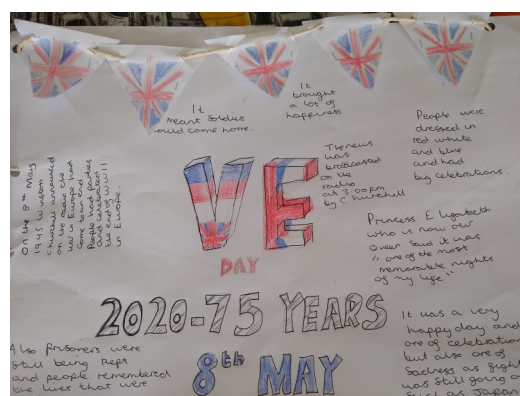 It
meant soldies
could come home.
It
brought
a lot of
happiness
People were
dressed in
red white
and blue
and had
big celebrations.
On the 8th May
1945 Winston
Churchill announced
on the radio the
war in Europe had
come to an end.
People had parties
and celebrated
the end of WWII
in Europe.
VE
DAY
The news
was
broadcassed
on the
radio
at 3:00pm
by C hurchill
Princess Elizabeth
who is now our
queen said it was
"one of the most
memorable nights
of my life"
2020-75 YEARS
8th MAY
Also Prisoners were
still being kept
and people remembered
the lives that were
It was a very
happy day and
one of celebration
but also one of
Sadness as fight
was still going o
such as Japan